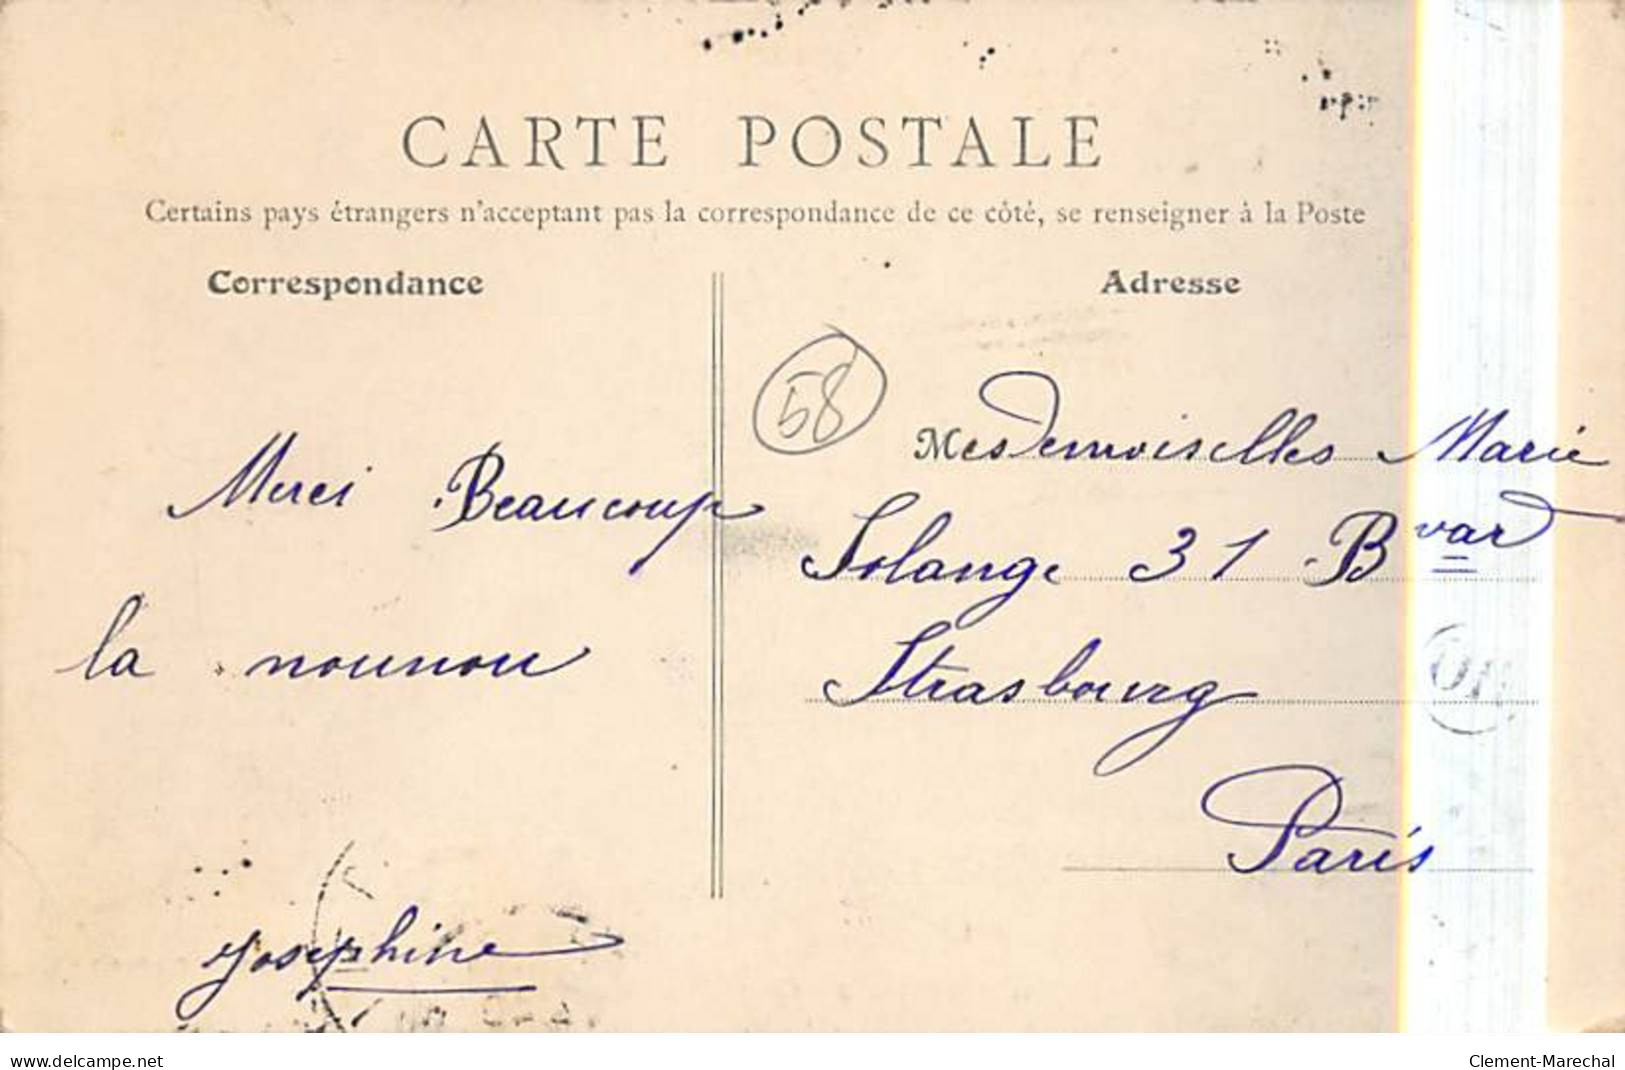 CARTE POSTALE
Certains pays étrangers n'acceptant pas la correspondance de ce côté, se renseigner à la Poste
Correspondance
Merci Beaucoup
la nounou
Josephine
Adresse
58
Mesdemoiselles Marie
Solange 31 Bvard
Strasbourg
Paris
delcampe.net
Clement-Marechal